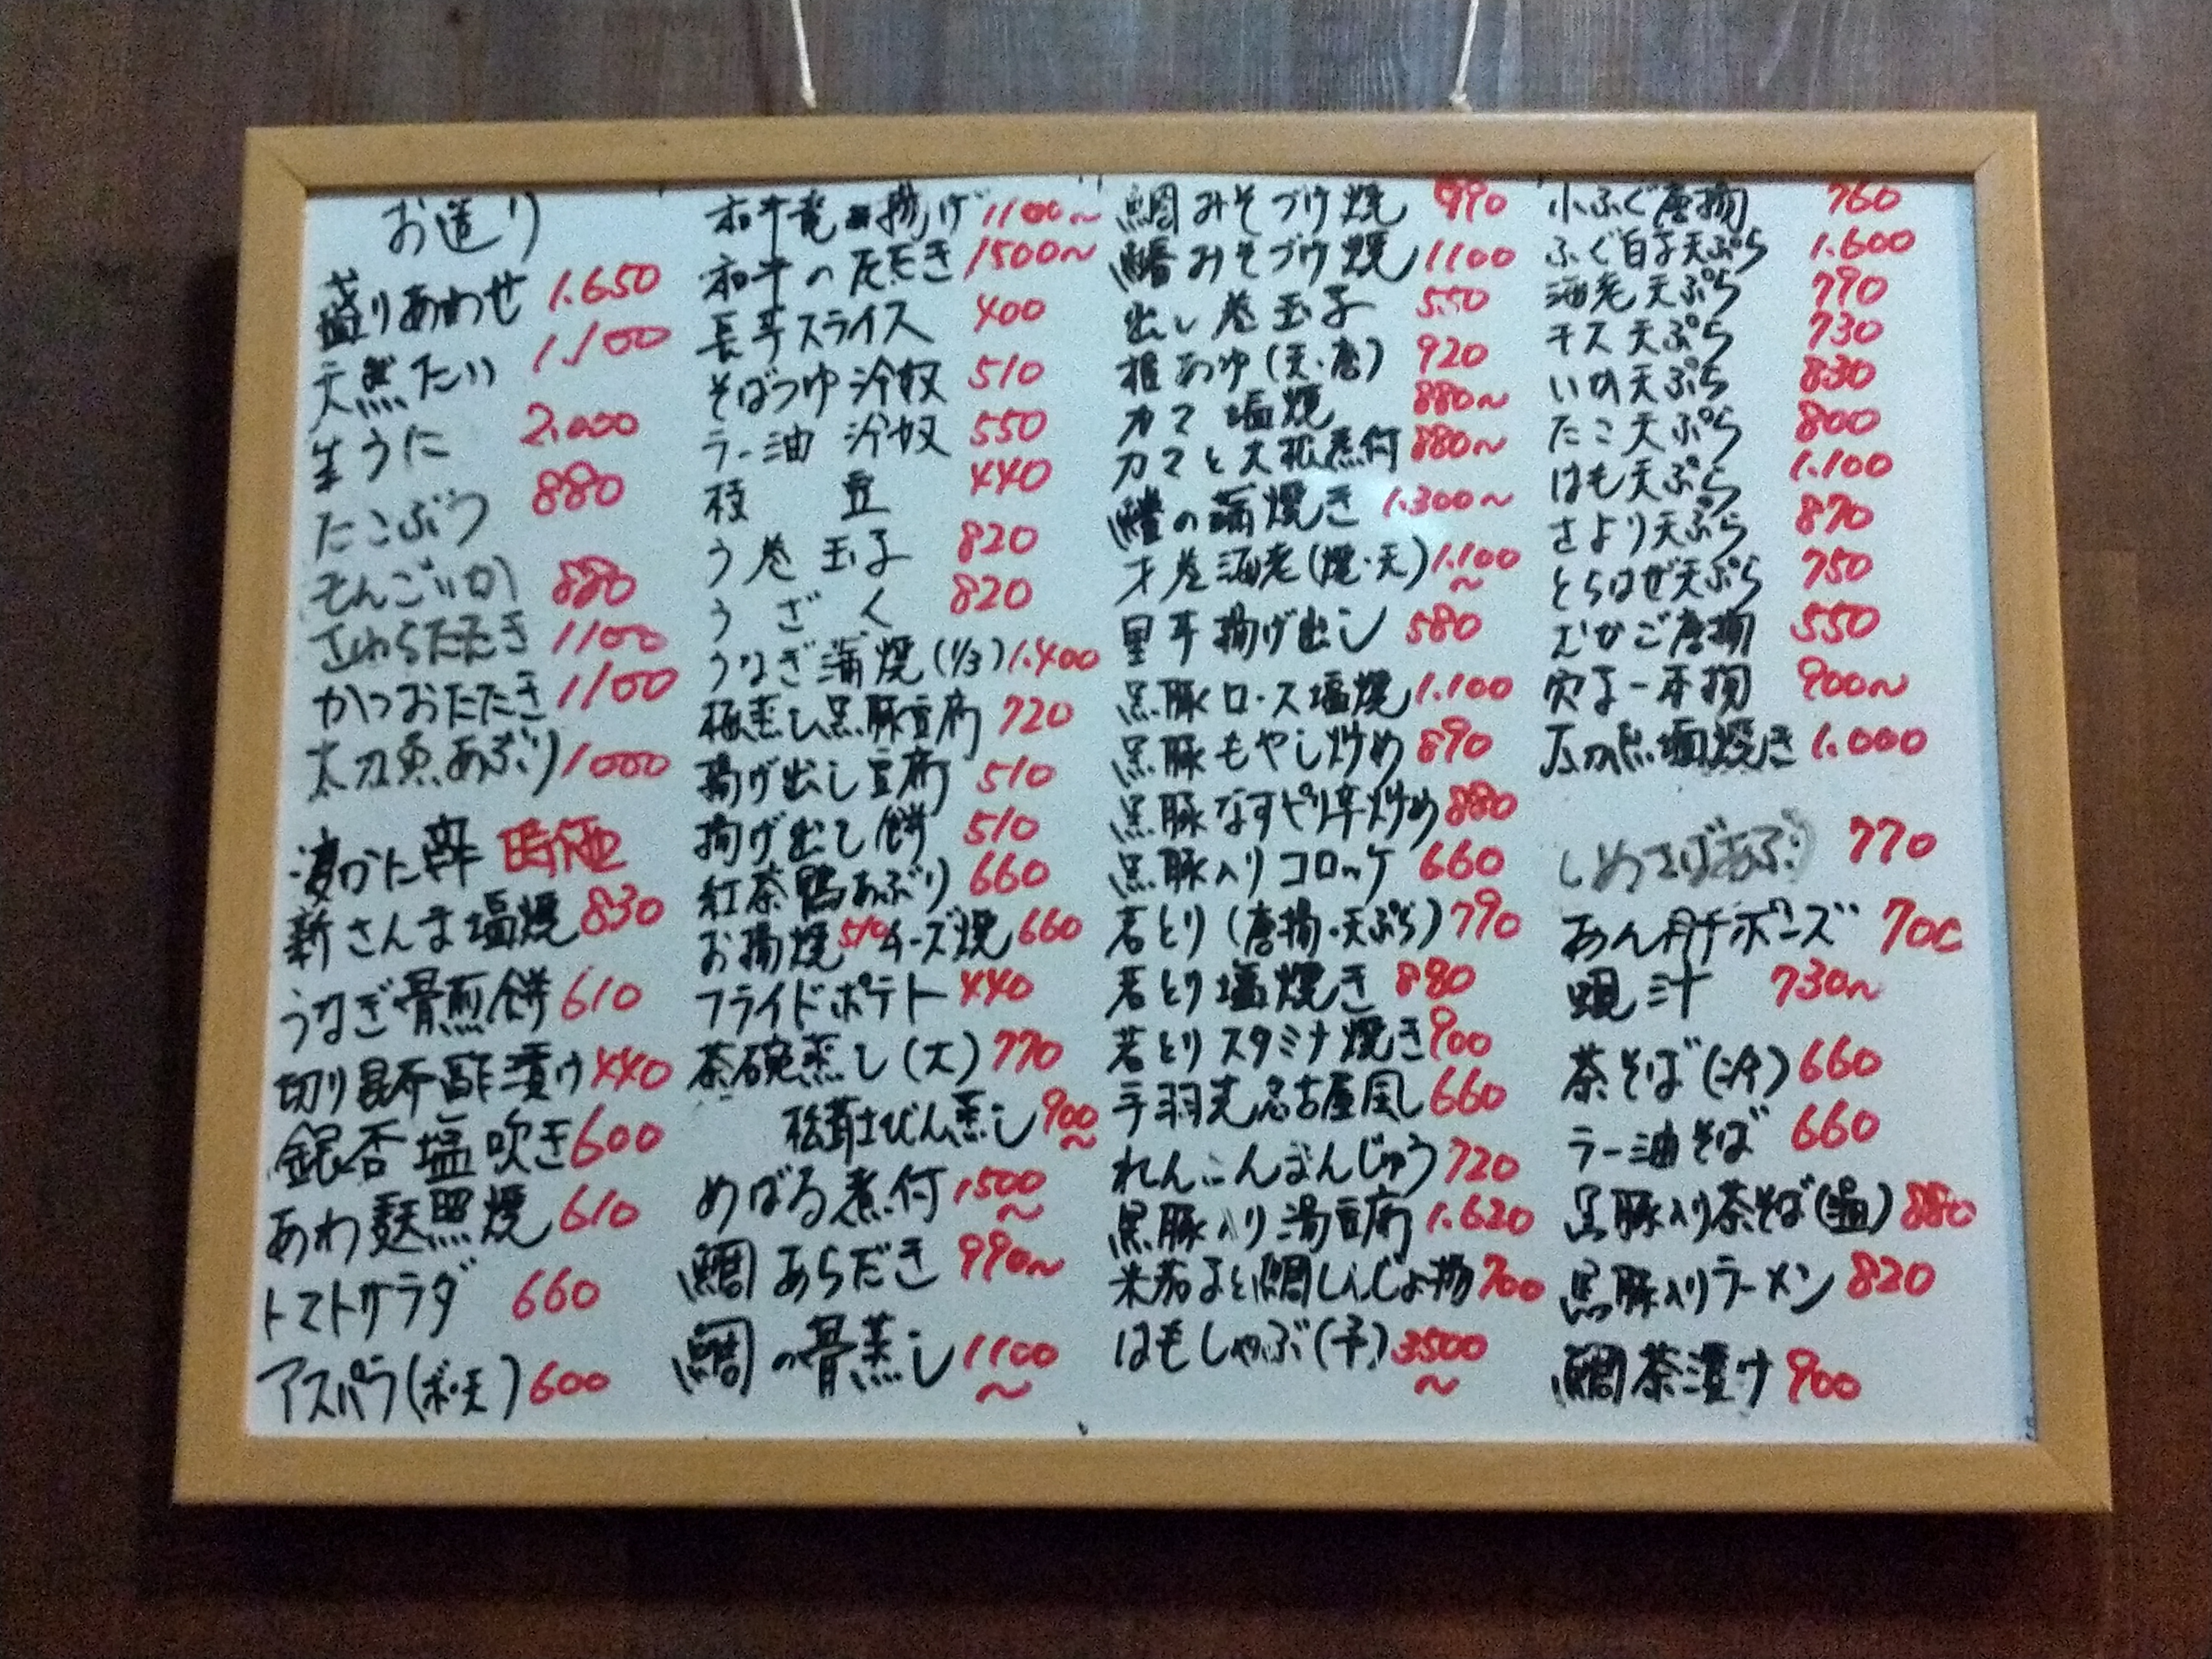 お造り
盛りあわせ 1.650
天然たい 1.100
生うに 2.000
たこぶつ 880
もんごいか 880
さわらたたき 1100
かつおたたき 1100
太刀魚あぶり 1000
渡りかに 時価
新さんま塩焼 830
うなぎ骨煎餅 610
切り昆布酢漬け 440
銀杏塩吹き 600
あわ麩照焼 610
トマトサラダ 660
アスパラ(ボ・天) 600
和牛竜田揚げ 1100〜
和牛のたたき 1500〜
長芋スライス 400
そばつゆ冷奴 510
ラー油冷奴 550
枝豆 440
う巻玉子 820
うざく 820
うなぎ蒲焼(1/3) 1.400
蒸し黒豚豆腐 720
揚げ出し豆腐 510
揚げ出し餅 510
紅茶鴨あぶり 660
お揚焼 510 チーズ焼 660
フライドポテト 440
茶碗蒸し(大) 770
松茸土びん蒸し 900〜
めばる煮付 1500〜
鯛あらだき 990〜
鯛の骨蒸し 1100〜
鯛みそづけ焼 990
みそづけ焼 1100
出し巻玉子 550
稚あゆ(天・唐) 920
カマ塩焼 880〜
カマと大根煮付 880〜
鱧の蒲焼き 1.300〜
才巻海老(焼・天) 1.100〜
里芋揚げ出し 580
黒豚ロース塩焼 1.100
黒豚もやし炒め 890
黒豚なすピリ辛炒め 880
黒豚入りコロッケ 660
若とり(唐揚・天ぷら) 790
若とり塩焼き 880
若とりスタミナ焼き 900
手羽先名古屋風 660
れんこんまんじゅう 720
黒豚入り湯豆腐 1.620
米茄子と鯛しんじょ揚 700
はもしゃぶ(予) 3500〜
小ふぐ唐揚 760
ふぐ白子天ぷら 1.600
海老天ぷら 790
キス天ぷら 730
いか天ぷら 830
たこ天ぷら 800
はも天ぷら 1.100
さより天ぷら 870
とらはぜ天ぷら 750
むかご唐揚 550
穴子一本揚 900〜
太刀魚塩焼き 1.000
しめさばあぶり 770
あん肝ポンズ 700
蜆汁 730〜
茶そば(冷) 660
ラー油そば 660
黒豚入り茶そば(温) 880
黒豚入りラーメン 820
鯛茶漬け 900